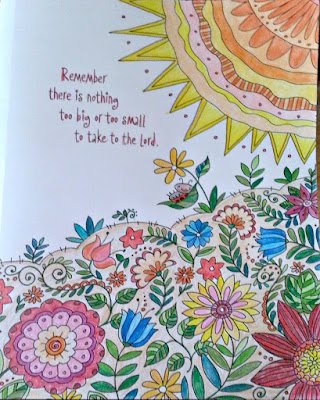 Remember
there is nothing
too big or too small
to take to the Lord.